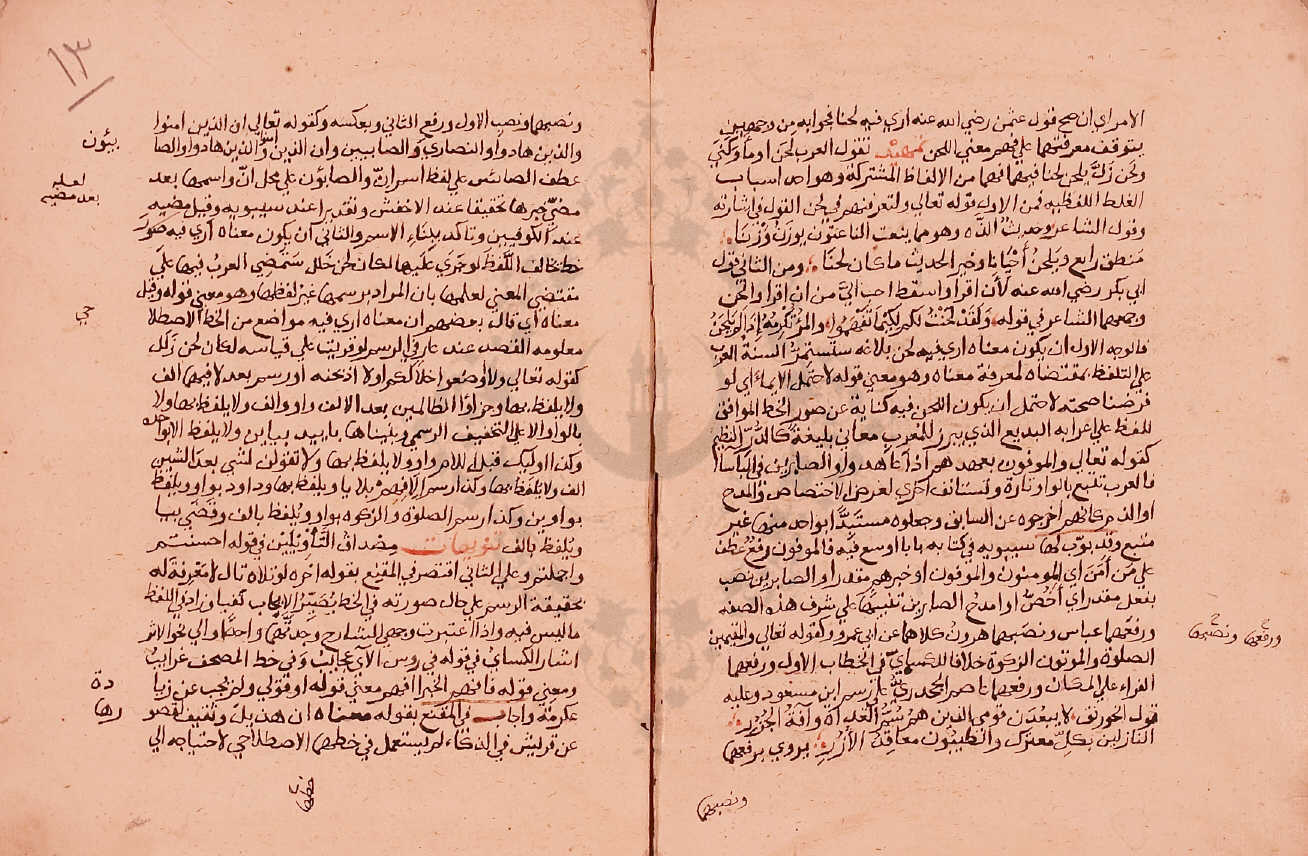 الامر اي ان صح قول عثمن رضي الله عنه اري فيه لحنا فجوابه من وجهين
يتوقف معرفتهما علي فهم معني اللحن تمهيد تقول العرب لحن اومأ وكني
ولحن زلّ يلحن لحنا فيهما فهما من الالفاظ المشتركة وهو احد اسباب
الغلط اللفظيه فمن الاول قوله تعالي ولتعرفنهم في لحن القول في اشارته
وقول الشاعر وحديث الذّه وهو مما ينعت الناعتون يوزن وزنا
منطق رايع ويلحن احيانا وخير الحديث ما كان لحنا ومن الثاني قول
ابي بكر رضي الله عنه لأن اقرأ واسقط احب اليّ من ان اقرا والحن
وجمعهما الشاعر في قوله ولقد لحنت لكم لكيما تفهموا والمرء تكرمه اذا لم يلحن
فالوجه الاول ان يكون معناه اري فيه لحن بلاغه ستستمر السنة العرب
علي التلفظ بمقتضاه لمعرفة معناه وهو معني قوله لاحتمل الايماء اي لو
فرضنا صحته لاحتمل ان يكون اللحن فيه كناية عن صور الخط الموافق
للفظ علي اعرابه البديع الذي يبرز للمغرب معاني بليغة كالدرّ النظيم
كقوله تعالي والموفون بعهدهم اذا عاهدوا والصابرين في الباساء
فالعرب تتبع بالواو تارة وتستانف اخري لغرض الاختصاص والمدح
او الذم فكانهم اخرجوه عن السابق وجعلوه مستبدّا بواحد منهما غير
متبع وقد بوّب لهما سيبويه في كتابه بابا اوسع فيه فالموفون رفع عطف
علي من آمن اي المومنون والموفون او خبرهم مقدر او الصابرين نصب
بفعل مقدر اي اخصّ او امدح الصابرين تنبيها علي شرف هذه الصفه
ورفعهما عباس ونصبهما هرون كلاهما عن ابي عمرو وكقوله تعالي والمقيمين
الصلوة والموتون الزكوة خلافا للكسايّ في الخطاب الاول ورفعهما
الفراء علي المكان ورفعهما عاصم الجحدريّ علي رسم ابن مسعود وعليه
قول الخورنق لا يبعدن قومي الذين هم سُمّ العداة وآفة الجُزر
النازلين بكلّ معترك والطيبون معاقد الأُزر يروي برفعهما
ورفعهما ونصبهما
ونصبهما
١٣
ونصبهما ونصب الاول ورفع الثاني وبعكسه وكقوله تعالي ان الذين امنوا
والذين هادوا والنصاري والصابيين وان الذين والذين هادوا والصا
عطف الصائبين علي لفظ اسم انّ والصابون علي محل انّ واسمها بعد
مضيّ خبرها تحقيقا عند الاخفش وتقديرا عند سيبويه وقبل مضيه
عند الكوفيين وتاكد ببناء الاسم والثاني ان يكون معناه اري فيه صور
خط تخالف اللفظ لو جري عليها لكان لحن خلل ستمضي العرب فيها علي
مقتضي المعني لعلمها بان المراد برسمها غير لفظها وهو معني قوله وقيل
معناه اي قال بعضهم ان معناه اري فيه مواضع من الخط الاصطلا
معلومه القصد عند عارفي الرسم لو قريت علي قياسه لكان لحن زلل
كقوله تعالي ولا اوضعوا خلالكم او لا اذبحنه او رسم بعد لا فيهما الف
ولا يلفظ بها وجزاؤا الظالمين بعد الالف واو والف ولا يلفظ بها ولا
بالواو الا علي التخفيف الرسمي وبنيناها باييد بيايين ولا يلفظ الا بواحده
وكذا اوليك قبل لام واو ولا يلفظ بها ولا تقولن لشي بعد الشين
الف ولا يلفظ بها وكذا رسم الافهم بلا يا ويلفظ بها وداود بواو ويلفظ
بواوين وكذا رسم الصلوة والزكوه بواو ويلفظ بالف وقضي بيا
ويلفظ بالف تنويعات مصداق التأويلين في قوله احسنتم
واجملتم وعلي الثاني اقتصر في المقنع بقوله اخره لو تلاه تال لا معرفة له
بحقيقة الرسم علي حال صورته في الخط يُصيّر الايجاب نفيا وزاد في اللفظ
ما ليس فيه واذا اعتبرت وجهي الشارح وجدتهما واحدا والي نحو الاثر
اشار الكسائ في قوله في روس الآي عجايب وفي خط المصحف غرايب
ومعني قوله فافهم الخبر افهم معني قوله او قولي ولم يجب عن زيا
عكرمة واجاب في المقنع بقوله معناه ان هذيل وثقيف لقصو
عن قريش في الذكاء لم يستعمل في خطها الاصطلاحي لاحتياجه الي
بيؤن
لعله
بعد مضيه
حي
دة
رها
خطها